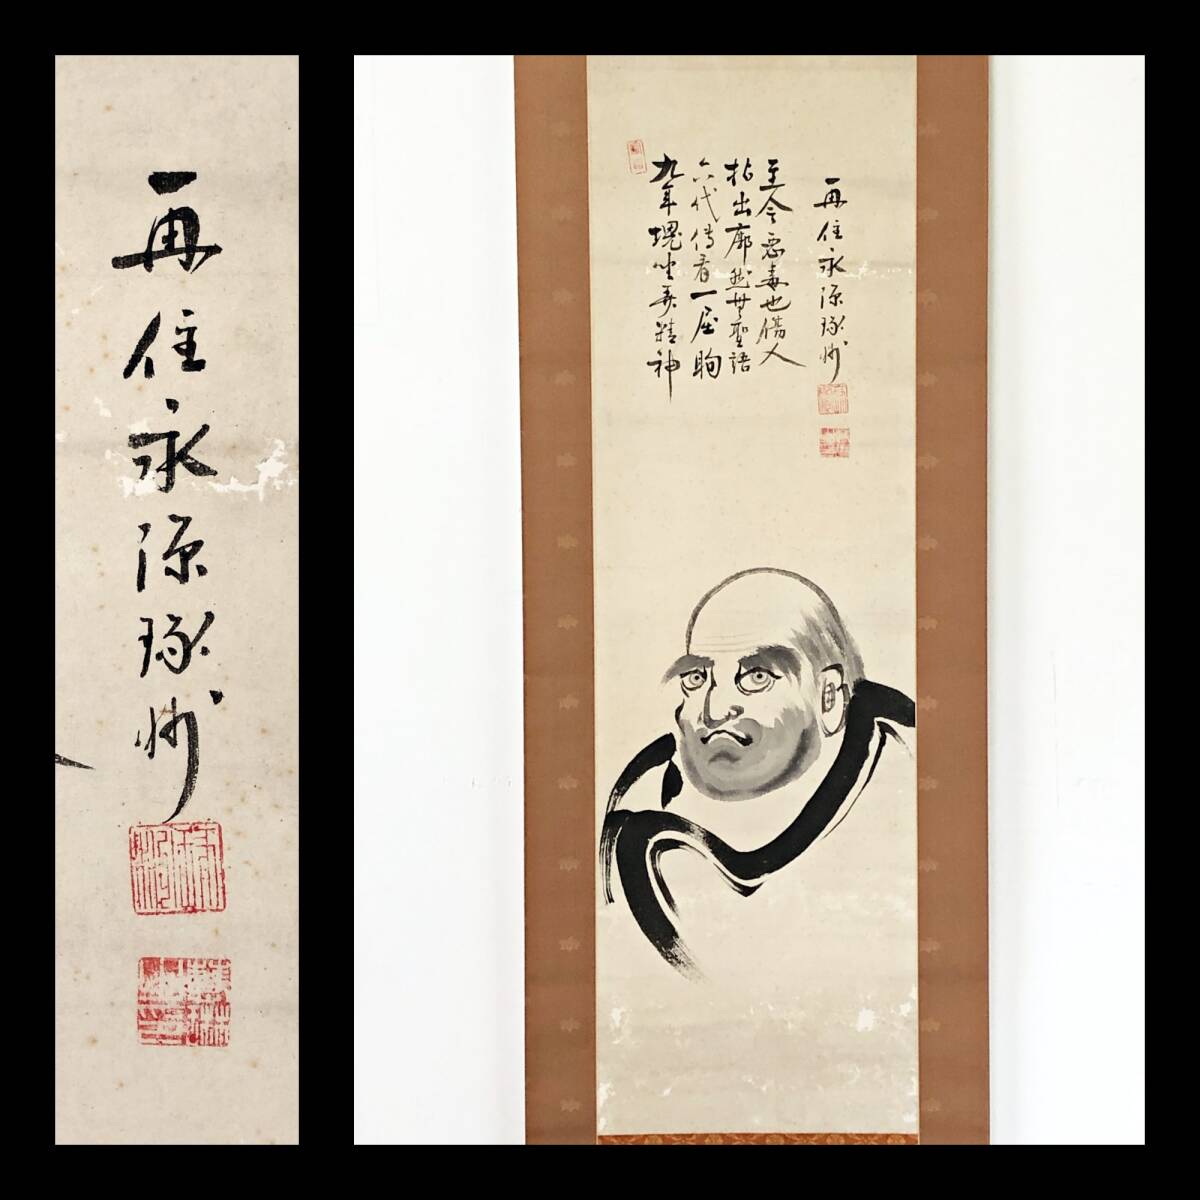 再住永源琢州
九年塊坐弄精神
六代傳看一屈眴
拈出廓然無聖語
至今惡毒也傷人
再住永源琢州